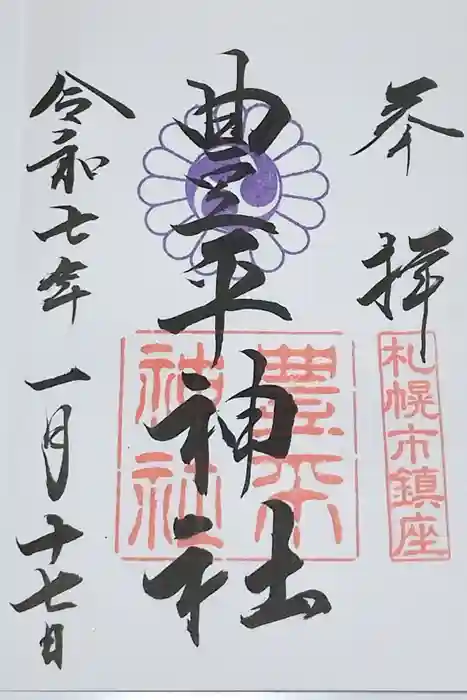 奉拝
札幌市鎮座
豊平神社
豊平
神社
令和七年一月十七日